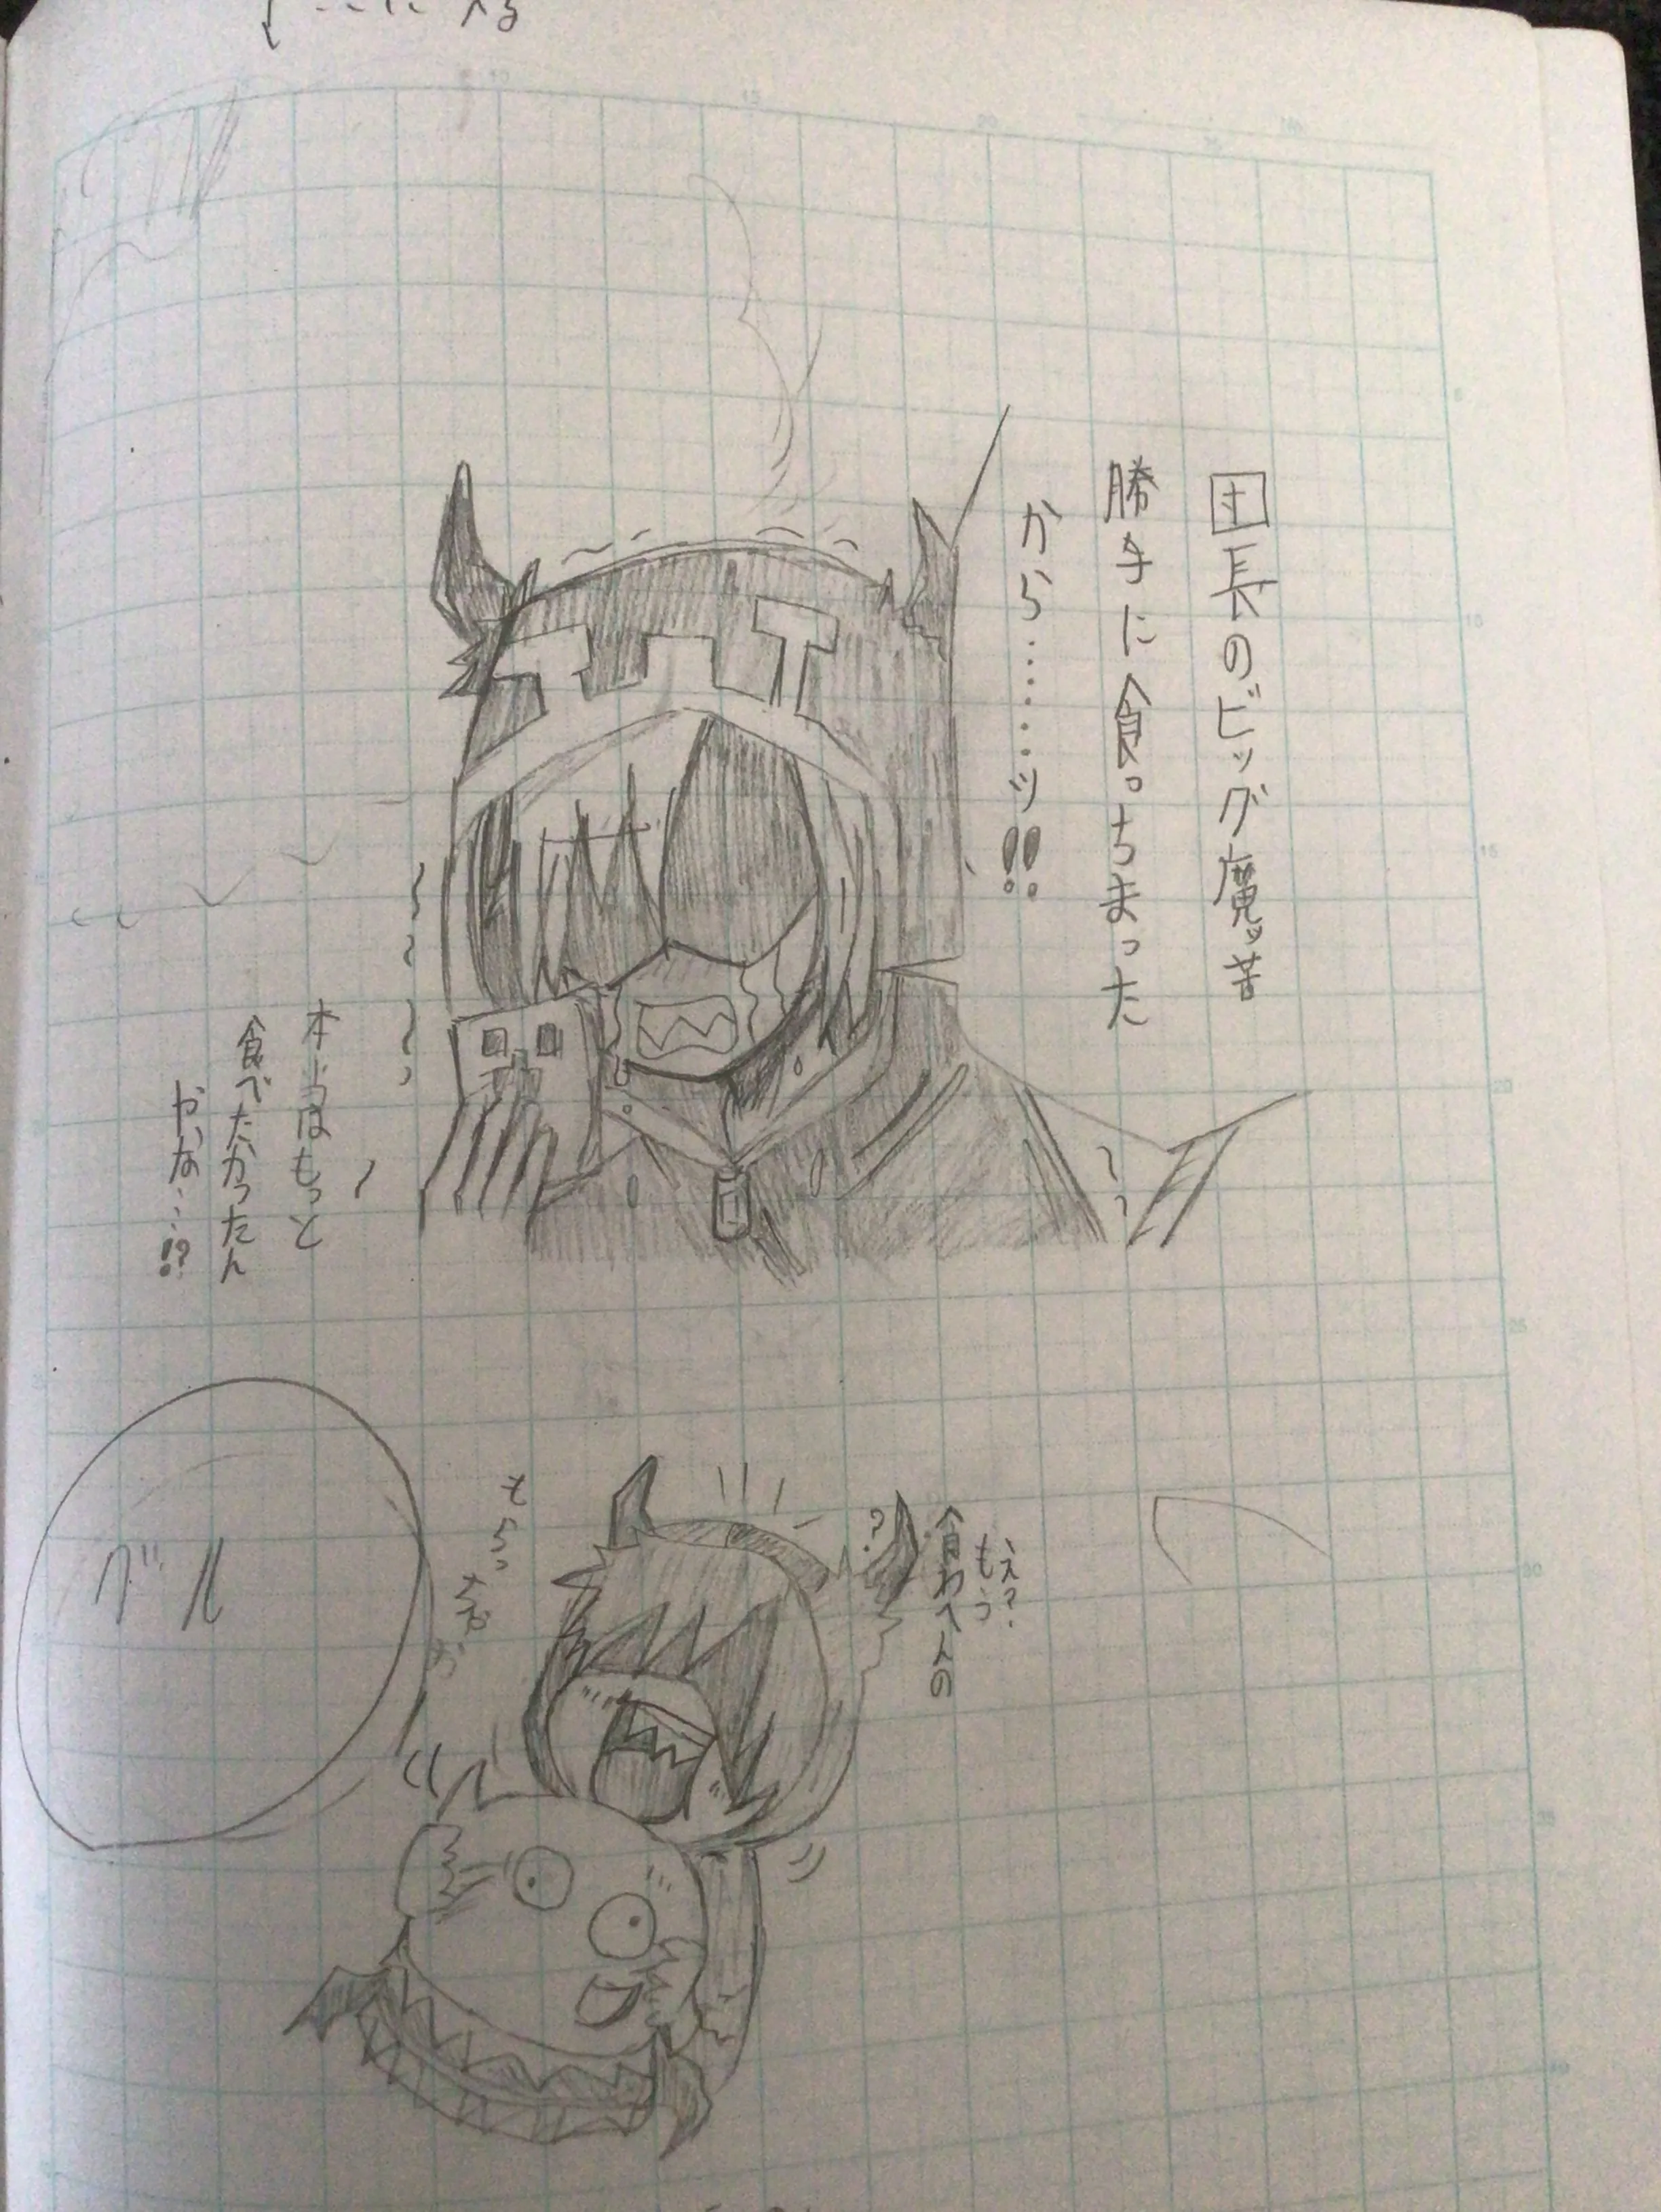 団長のビッグ魔ッ苦
勝手に食っちまった
から………ッ!!
本当はもっと
食べたかったん
やな…!?
え?
もう
食わへんの
?
もらっ
グル